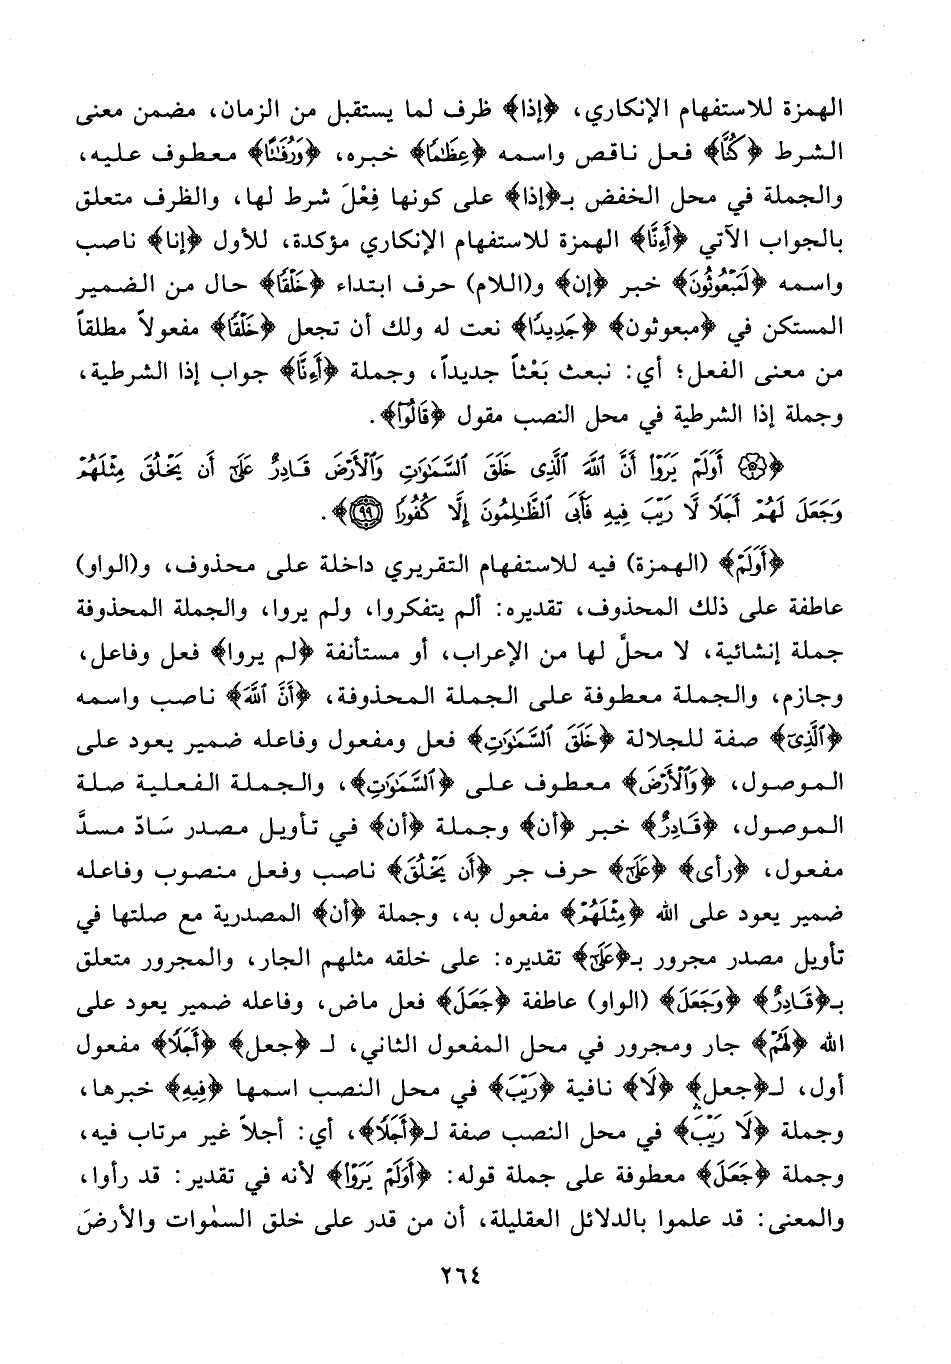 الهمزة للاستفهام الإنكاري، ﴿إذا﴾ ظرف لما يستقبل من الزمان، مضمن معنى
الشرط ﴿كُنَّا﴾ فعل ناقص واسمه ﴿عِظَٰمًا﴾ خبره، ﴿وَرُفَٰتًا﴾ معطوف عليه،
والجملة في محل الخفض بـ﴿إذا﴾ على كونها فِعْلَ شرط لها، والظرف متعلق
بالجواب الآتي ﴿أَءِنَّا﴾ الهمزة للاستفهام الإنكاري مؤكدة، للأول ﴿إنا﴾ ناصب
واسمه ﴿لَمَبْعُوثُونَ﴾ خبر ﴿إن﴾ و(اللام) حرف ابتداء ﴿خَلْقًا﴾ حال من الضمير
المستكن في ﴿مبعوثون﴾ ﴿جَدِيدًا﴾ نعت له ولك أن تجعل ﴿خَلْقًا﴾ مفعولاً مطلقاً
من معنى الفعل؛ أي: نبعث بَعْثاً جديداً، وجملة ﴿أَءِنَّا﴾ جواب إذا الشرطية،
وجملة إذا الشرطية في محل النصب مقول ﴿قَالُوٓا۟﴾.
﴿۞ أَوَلَمْ يَرَوْا۟ أَنَّ ٱللَّهَ ٱلَّذِى خَلَقَ ٱلسَّمَٰوَٰتِ وَٱلْأَرْضَ قَادِرٌ عَلَىٰٓ أَن يَخْلُقَ مِثْلَهُمْ
وَجَعَلَ لَهُمْ أَجَلًا لَّا رَيْبَ فِيهِ فَأَبَى ٱلظَّٰلِمُونَ إِلَّا كُفُورًا ٩٩﴾.
﴿أَوَلَمْ﴾ (الهمزة) فيه للاستفهام التقريري داخلة على محذوف، و(الواو)
عاطفة على ذلك المحذوف، تقديره: ألم يتفكروا، ولم يروا، والجملة المحذوفة
جملة إنشائية، لا محلَّ لها من الإعراب، أو مستأنفة ﴿لم يروا﴾ فعل وفاعل،
وجازم، والجملة معطوفة على الجملة المحذوفة، ﴿أَنَّ ٱللَّهَ﴾ ناصب واسمه
﴿ٱلَّذِى﴾ صفة للجلالة ﴿خَلَقَ ٱلسَّمَٰوَٰتِ﴾ فعل ومفعول وفاعله ضمير يعود على
الموصول، ﴿وَٱلْأَرْضَ﴾ معطوف على ﴿ٱلسَّمَٰوَٰتِ﴾، والجملة الفعلية صلة
الموصول، ﴿قَادِرٌ﴾ خبر ﴿أن﴾ وجملة ﴿أن﴾ في تأويل مصدر سَادّ مسدَّ
مفعول، ﴿رأى﴾ ﴿عَلَىٰٓ﴾ حرف جر ﴿أَن يَخْلُقَ﴾ ناصب وفعل منصوب وفاعله
ضمير يعود على الله ﴿مِثْلَهُمْ﴾ مفعول به، وجملة ﴿أن﴾ المصدرية مع صلتها في
تأويل مصدر مجرور بـ﴿عَلَىٰٓ﴾ تقديره: على خلقه مثلهم الجار، والمجرور متعلق
بـ﴿قَادِرٌ﴾ ﴿وَجَعَلَ﴾ (الواو) عاطفة ﴿جَعَلَ﴾ فعل ماض، وفاعله ضمير يعود على
الله ﴿لَهُمْ﴾ جار ومجرور في محل المفعول الثاني، لـ ﴿جعل﴾ ﴿أَجَلًا﴾ مفعول
أول، لـ﴿جعل﴾ ﴿لَا﴾ نافية ﴿رَيْبَ﴾ في محل النصب اسمها ﴿فِيهِ﴾ خبرها،
وجملة ﴿لَا رَيْبَ﴾ في محل النصب صفة لـ﴿أَجَلًا﴾، أي: أجلاً غير مرتاب فيه،
وجملة ﴿جَعَلَ﴾ معطوفة على جملة قوله: ﴿أَوَلَمْ يَرَوْا۟﴾ لأنه في تقدير: قد رأوا،
والمعنى: قد علموا بالدلائل العقليلة، أن من قدر على خلق السمٰوات والأرضَ
٢٦٤